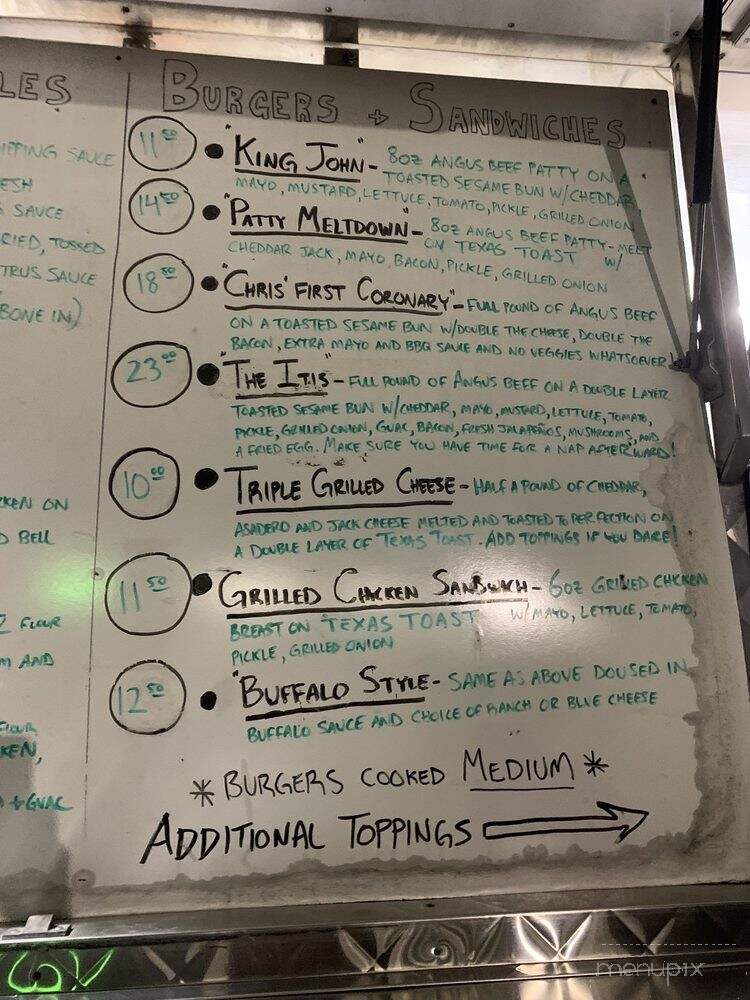 LES
BURGERS + SANDWICHES
IPPING SAUCE
ESH
SAUCE
RIED, TOSSED
TRUS SAUCE
BONE IN)
KEN ON
D BELL
FLOUR
M AND
FLOUR
KEN,
+ GUAC
11 50 • "KING JOHN" - 8OZ ANGUS BEEF PATTY ON A
TOASTED SESAME BUN W/CHEDDAR,
MAYO, MUSTARD, LETTUCE, TOMATO, PICKLE, GRILLED ONION
14 50 • "PATTY MELTDOWN" - 8OZ ANGUS BEEF PATTY - MELT
ON TEXAS TOAST W/
CHEDDAR JACK, MAYO, BACON, PICKLE, GRILLED ONION
18 50 • "CHRIS' FIRST CORONARY" - FULL POUND OF ANGUS BEEF
ON A TOASTED SESAME BUN W/DOUBLE THE CHEESE, DOUBLE THE
BACON, EXTRA MAYO AND BBQ SAUCE AND NO VEGGIES WHATSOEVER!
23 00 • "THE ITIS" - FULL POUND OF ANGUS BEEF ON A DOUBLE LAYER
TOASTED SESAME BUN W/CHEDDAR, MAYO, MUSTARD, LETTUCE, TOMATO,
PICKLE, GRILLED ONION, GUAC, BACON, FRESH JALAPEÑOS, MUSHROOMS, AND
A FRIED EGG. MAKE SURE YOU HAVE TIME FOR A NAP AFTERWARD!
10 00 • TRIPLE GRILLED CHEESE - HALF A POUND OF CHEDDAR,
ASADERO AND JACK CHEESE MELTED AND TOASTED TO PERFECTION ON
A DOUBLE LAYER OF TEXAS TOAST. ADD TOPPINGS IF YOU DARE!
11 50 • GRILLED CHICKEN SANDWICH - 6OZ GRILLED CHICKEN
BREAST ON TEXAS TOAST W/MAYO, LETTUCE, TOMATO,
PICKLE, GRILLED ONION
12 50 • "BUFFALO STYLE - SAME AS ABOVE DOUSED IN
BUFFALO SAUCE AND CHOICE OF RANCH OR BLUE CHEESE
* BURGERS COOKED MEDIUM *
ADDITIONAL TOPPINGS
menupix